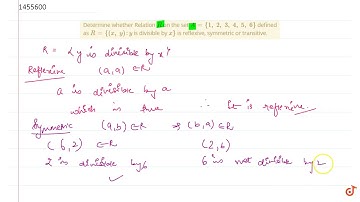 1455600
Determine whether Relation R on the set A = {1, 2, 3, 4, 5, 6} defined
as R = {(x, y) : y is divisible by x} is reflexive, symmetric or transitive.
R = { y is divisible by x }
Reflexive (a,a) ∈R
a is divisible by a
which is true ∴ it is reflexive
Symmetric (a,b) ∈R ⇒ (b,a) ∈R
(6,2) ∈R (2,6)
2 is divisible by 6 6 is not divisible by 2
✓